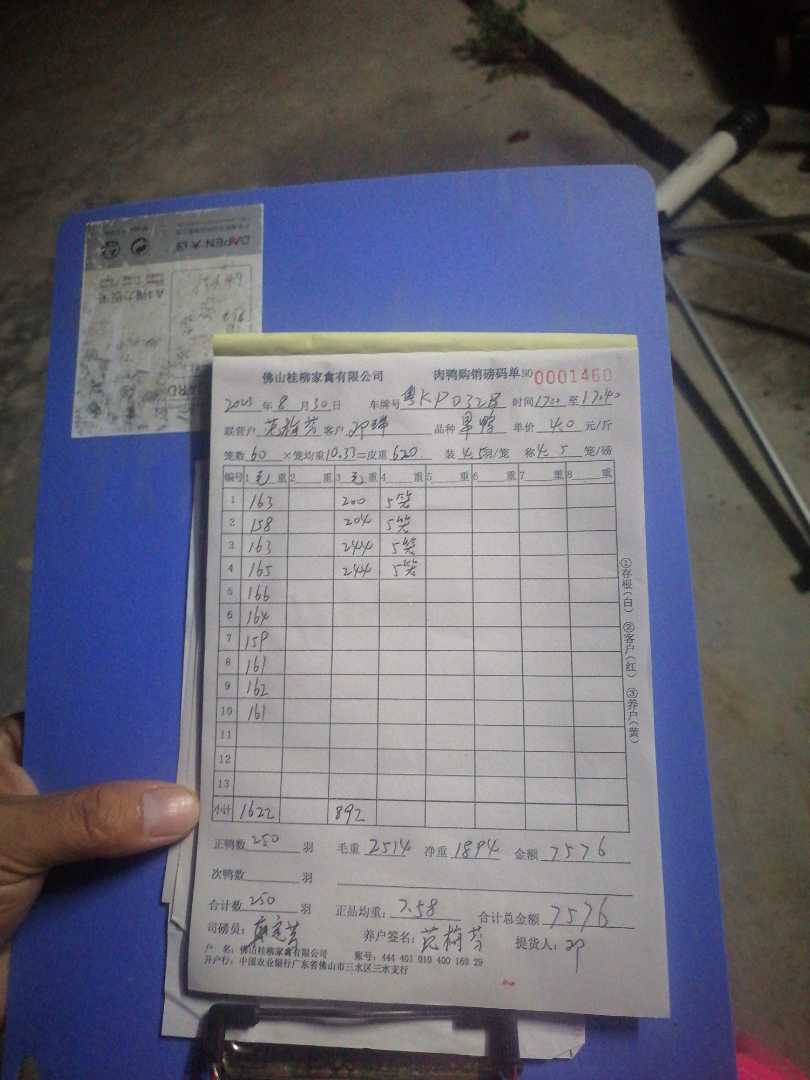 DAPEN 大
A4
佛山桂柳家禽有限公司 肉鸭购销磅码单 NO 0001460
2023年8月30日 车牌号 粤KP032B 时间 1720 至 17:40
联营户 范梅芬 客户 邓 品种 单价 4.0 元/斤
笼数 60 ×笼均重 10.33=皮重 620 装 4.5羽/笼 称 4.5 笼/磅
编号 1 毛 重 2 重 3 毛 重 4 重 5 重 6 重 7 重 8 重
1 163 200 5笼
2 158 204 5笼
3 163 244 5笼
4 165 244 5笼
5 166
6 164
7 159
8 161
9 162
10 161
11
12
13
小计 1622 892
正鸭数 250 羽 毛重 2514 净重 1894 金额 7576
次鸭数 羽
合计数 250 羽 正品均重: 7.58 合计总金额 7576
司磅员: 养户签名: 范梅芬 提货人: 邓
户 名: 佛山桂柳家禽有限公司 账号: 444 401 010 400 169 29
开户行: 中国农业银行广东省佛山市三水区三水支行
①存根(白) ②客户(红) ③养户(黄)